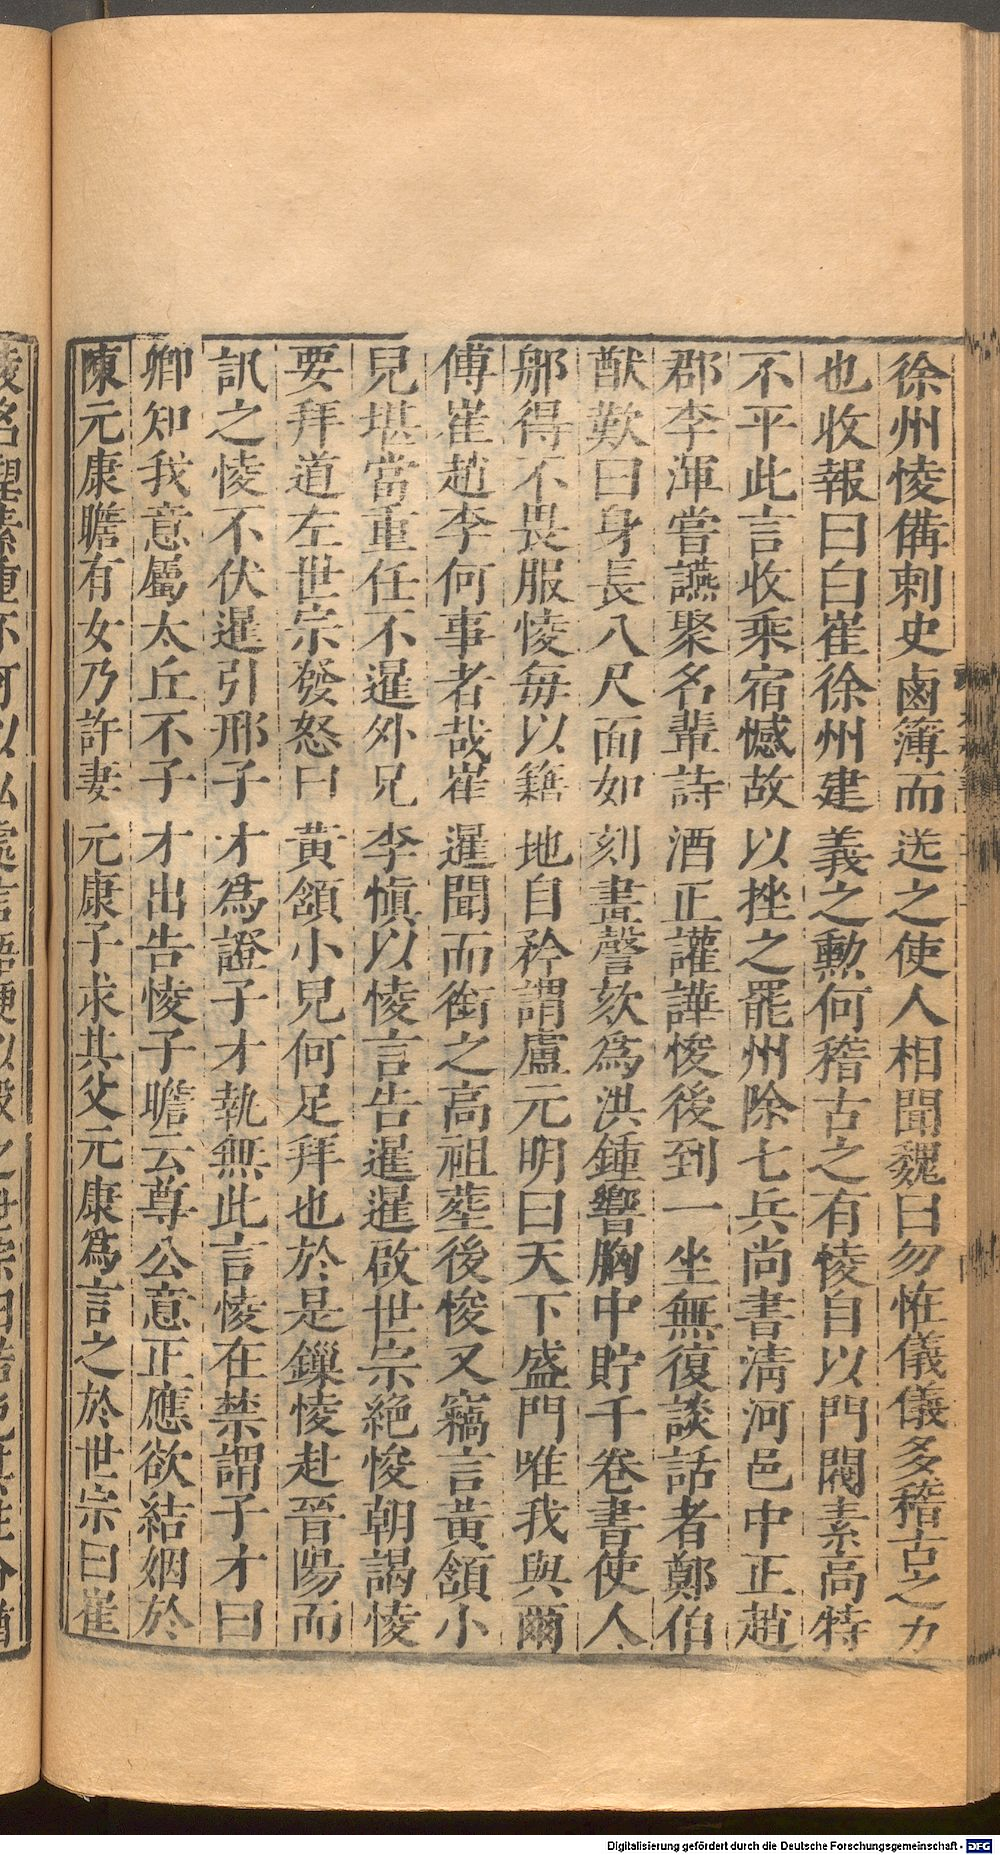 徐州㥄備刺史鹵簿而送之使人相聞魏曰勿恠儀儀多稽古之力
也收報曰白崔徐州建義之勲何稽古之有㥄自以門閥素高特
不平此言收乘宿憾故以挫之罷州除七兵尚書淸河邑中正趙
郡李渾嘗讌聚名輩詩酒正讙譁㥄後到一坐無復談話者鄭伯
猷歎曰身長八尺面如刻畫謦欬爲洪鍾響胸中貯千卷書使人
那得不畏服㥄每以籍地自矜謂盧元明曰天下盛門唯我與爾
傅崔趙李何事者哉崔暹聞而銜之高祖塟後㥄又竊言黃頷小
兒堪當重任不暹外兄李愼以㥄言告暹暹啟世宗絶㥄朝謁㥄
要拜道左世宗發怒曰黃頷小兒何足拜也於是鏁㥄赴晉陽而
訊之㥄不伏暹引邢子才爲證子才執無此言㥄在禁謂子才曰
卿知我意屬太丘不子才出告㥄子瞻云尊公意正應欲結姻於
陳元康瞻有女乃許妻元康子求其父元康爲言之於世宗曰崔
㥄名望素重不可以私處言語便以殺之世宗曰若免其性命猶
Digitalisierung gefördert durch die Deutsche Forschungsgemeinschaft - DFG